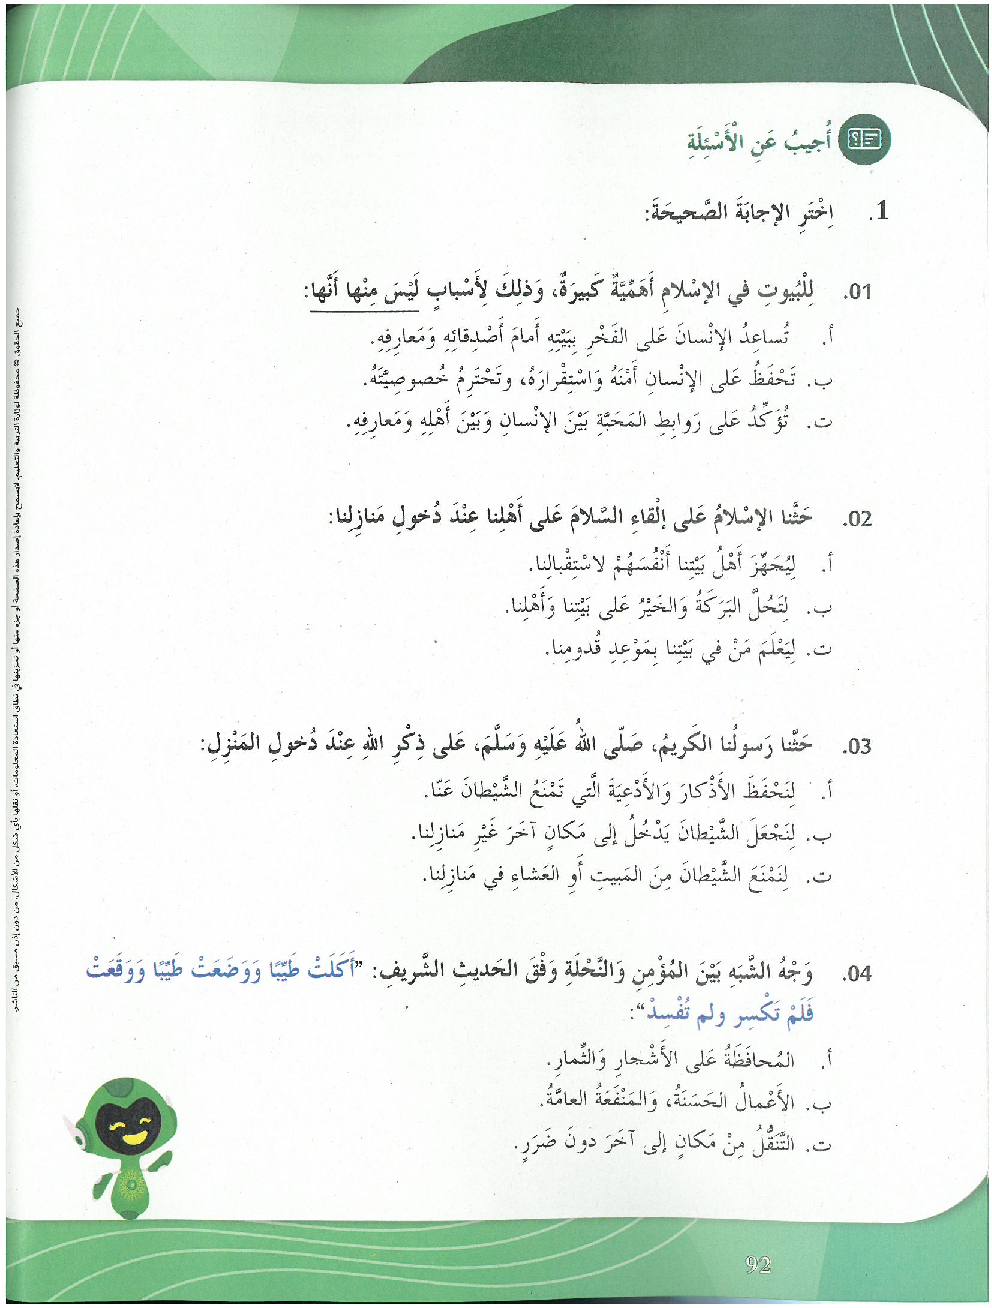 أُجيبُ عَنِ الْأَسْئِلَةِ
1. اِخْتَرِ الإجابَةَ الصَّحيحَةَ:
01. لِلْبُيوتِ في الإسْلامِ أَهَمِّيَّةٌ كَبيرَةٌ، وَذلِكَ لِأَسْبابٍ لَيْسَ مِنْها أَنَّها:
أ. تُساعِدُ الإنْسانَ عَلى الفَخْرِ بِبَيْتِهِ أَمامَ أَصْدِقائِهِ وَمَعارِفِهِ.
ب. تَحْفَظُ عَلى الإنْسانِ أَمْنَهُ وَاسْتِقْرارَهُ، وتَحْتَرِمُ خُصوصِيَّتَهُ.
ت. تُؤَكِّدُ عَلى رَوابِطِ المَحَبَّةِ بَيْنَ الإنْسانِ وَبَيْنَ أَهْلِهِ وَمَعارِفِهِ.
02. حَثَّنا الإسْلامُ عَلى إلْقاءِ السَّلامَ عَلى أَهْلِنا عِنْدَ دُخولِ مَنازِلِنا:
أ. لِيُجَهِّزَ أَهْلُ بَيْتِنا أَنْفُسَهُمْ لاسْتِقْبالِنا.
ب. لِتَحُلَّ البَرَكَةُ وَالخَيْرُ عَلى بَيْتِنا وَأَهْلِنا.
ت. لِيَعْلَمَ مَنْ في بَيْتِنا بِمَوْعِدِ قُدومِنا.
03. حَثَّنا رَسولُنا الكَريمُ، صَلّى اللهُ عَلَيْهِ وَسَلَّمَ، عَلى ذِكْرِ اللهِ عِنْدَ دُخولِ المَنْزِلِ:
أ. لِنَحْفَظَ الأَذْكارَ وَالأَدْعِيَةَ الَّتي تَمْنَعُ الشَّيْطانَ عَنّا.
ب. لِنَجْعَلَ الشَّيْطانَ يَدْخُلُ إلى مَكانٍ آخَرَ غَيْرِ مَنازِلِنا.
ت. لِنَمْنَعَ الشَّيْطانَ مِنَ المَبيتِ أَوِ العَشاءِ في مَنازِلِنا.
04. وَجْهُ الشَّبَهِ بَيْنَ المُؤْمِنِ وَالنَّحْلَةِ وَفْقَ الحَديثِ الشَّريفِ: ”أَكَلَتْ طَيِّبًا وَوَضَعَتْ طَيِّبًا وَوَقَعَتْ
فَلَمْ تَكْسِر ولم تُفْسِدْ“:
أ. المُحافَظَةُ عَلى الأَشْجارِ وَالثِّمارِ.
ب. الأَعْمالُ الحَسَنَةُ، وَالمَنْفَعَةُ العامَّةُ.
ت. التَّنَقُّلُ مِنْ مَكانٍ إلى آخَرَ دونَ ضَرَرٍ.
92